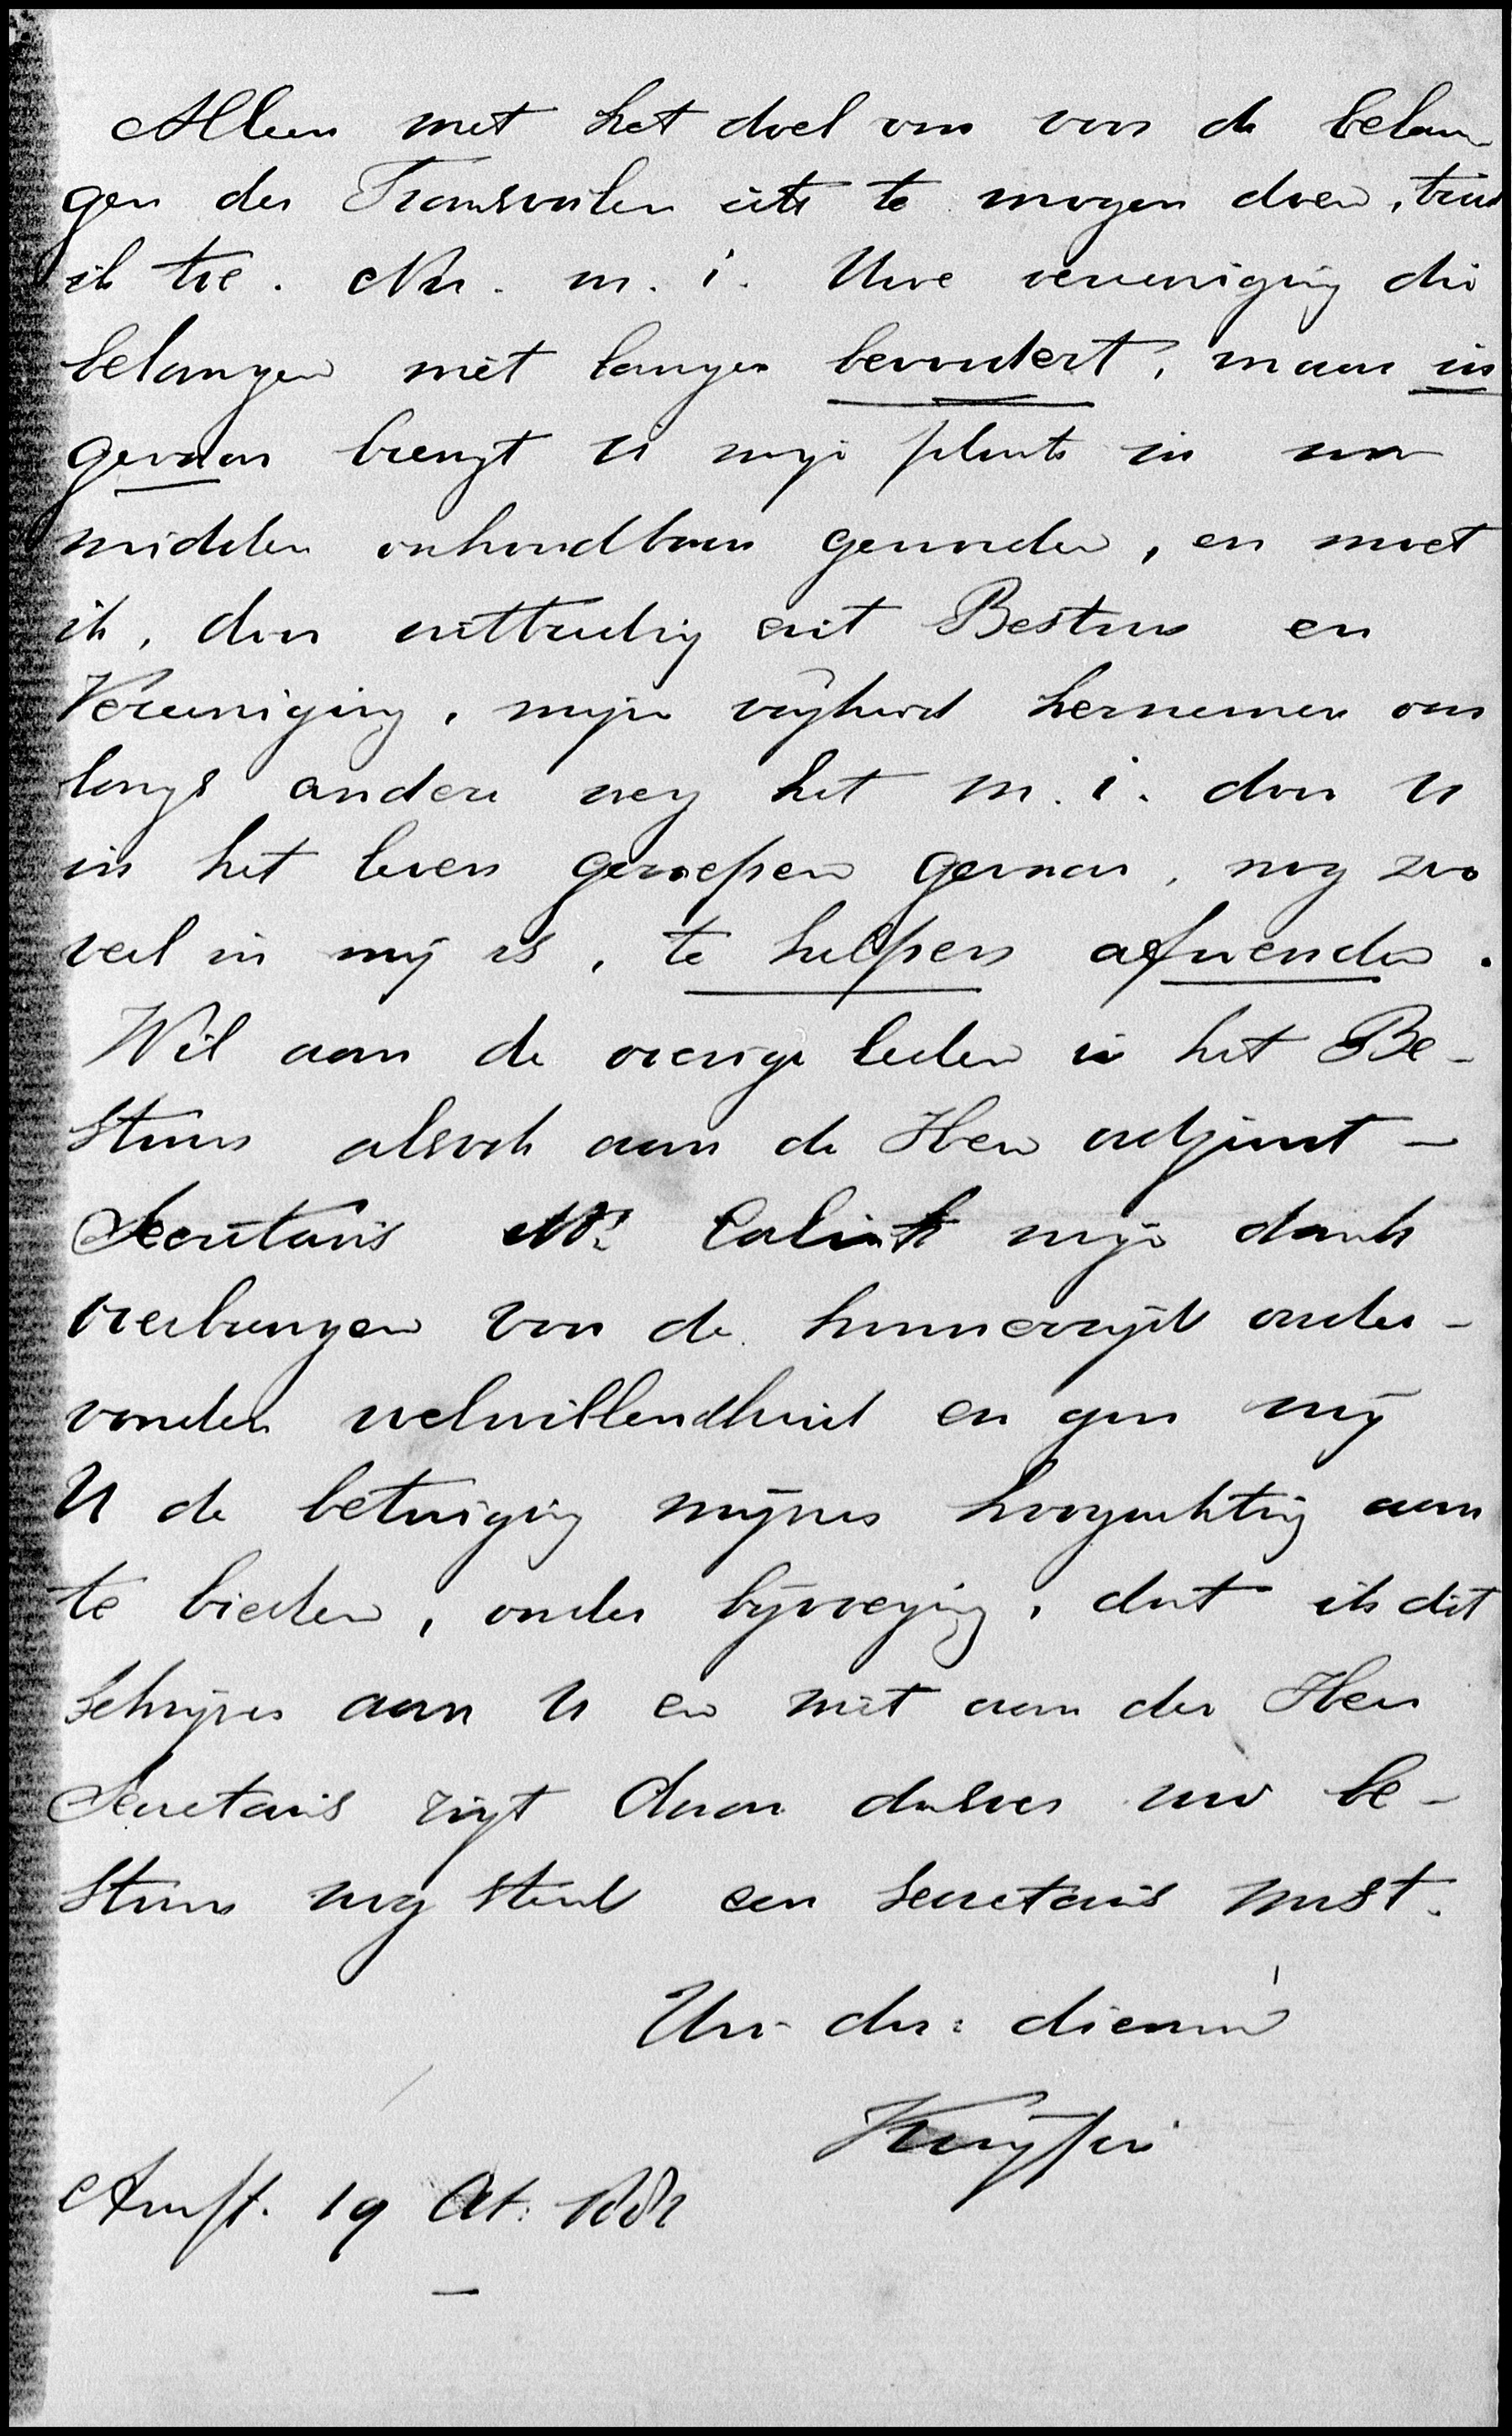 Alleen met het doel om voor de belan
gen der Transvalers iets te mogen doen, trad
ik toe. Nu m. i. Uwe vereeniging die
belangen niet langer bevordert, maar in
gevaar brengt is mijn plaats in uw
midden onhoudbaar geworden, en moet
ik, door uittreding uit Bestuur en
Vereeniging, mijn vrijheid hernemen om
langs andere weg het m. i. door U
in het leven geroepen gevaar, nog zoo
veel in mij is, te helpen afwenden.
Wil aan de overige leden in het Be-
stuur alsook aan de Heer adjunct-
Secretaris Mr. mijn dank
overbrengen voor de hunnerzijds onder-
vonden welwillendheid en gun mij
U de betuiging mijner hoogachting aan
te bieden, onder bijvoeging, dat ik dit
schrijven aan U en niet aan den Heer
Secretaris rigt daar dusver uw be-
stuur nog steeds een secretaris mist.
Uw dw: dienaar
Kuyper
Amst. 19 Oct. 1882